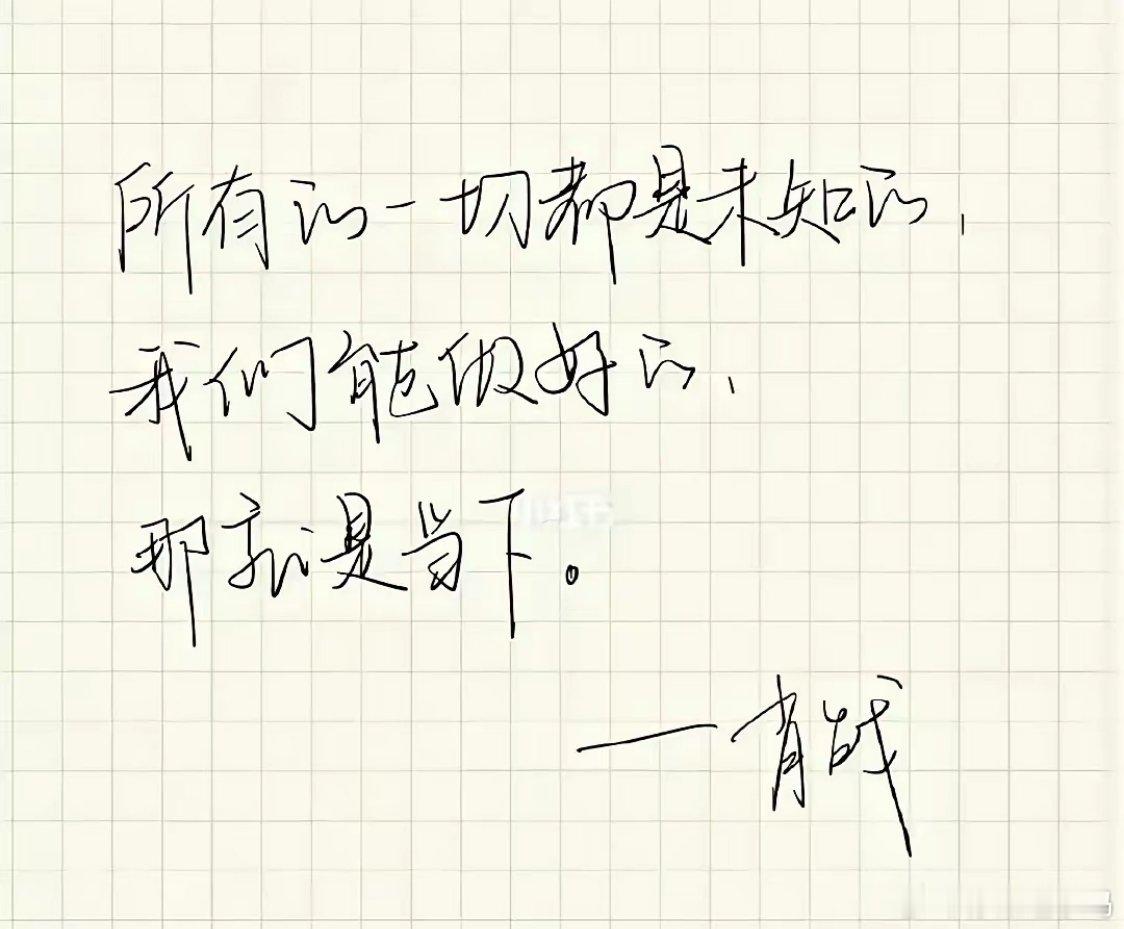 所有的一切都是未知的，
我们能做好的、
那就是当下。
——肖战